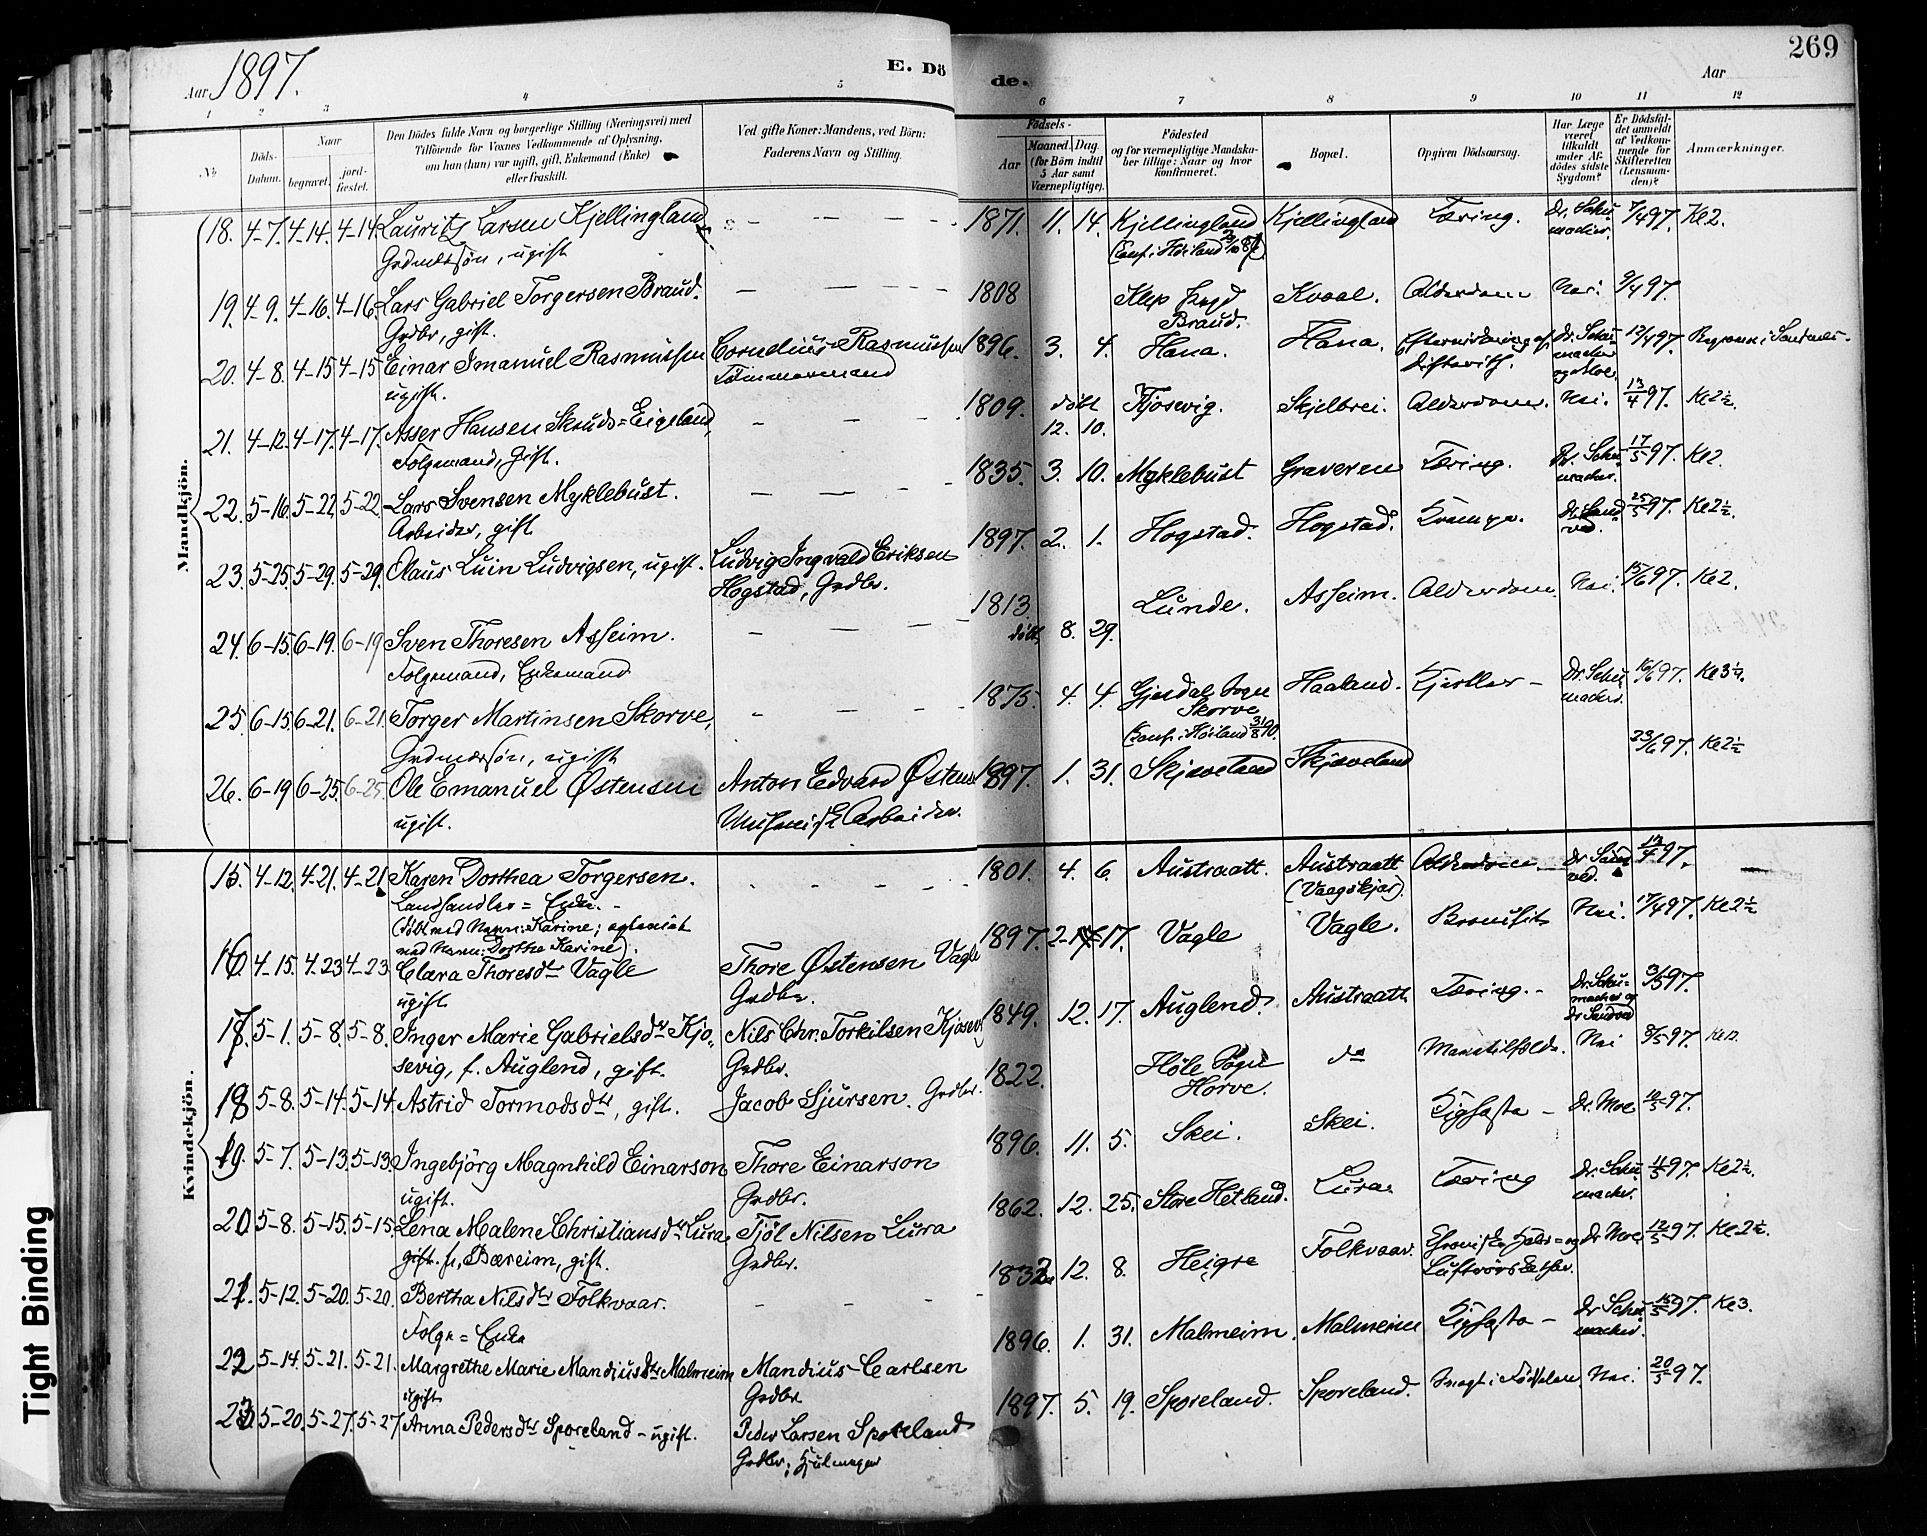 269
Aar 1897.
E. Dö
de.
Aar
1 2 3 4 5 6 7 8 9 10 11 12
No
Döds-Datum.
Naar
begravet.
jord-fæstet.
Den Dödes fulde Navn og borgerlige Stilling (Næringsvei) med
Tilföiende for Voxnes Vedkommende af Oplysning,
om han (hun) var ugift, gift, Enkemand (Enke)
eller fraskilt.
Ved gifte Koner: Mandens, ved Börn:
Faderens Navn og Stilling.
Födsels-
Aar
Maaned. Dag.
(for Börn indtil
5 Aar samt
Værnepligtige).
Födested
og for værnepligtige Mandska-
ber tillige: Naar og hvor
konfirmeret.
Bopæl.
Opgiven Dödsaarsag.
Har Læge
været
tilkaldt
under Af-
dödes sidste
Sygdom?
Er Dödsfal-
det anmeldt
af Vedkom-
mende for
Skifteretten
(Lensman-
den)?
Anmærkninger.
Mandkjön.
18. 4-7. 4-14. 4-14 Lauritz Larsen Kjellingland, — — — 1871. 11. 14. Kjellingland Kjellingland Tæring. Dr. Schu 7/4 97. Ke 2.
Grdmdssön, ugift (Conf. i Höiland macher.
19. 4-9. 4-16. 4-16. Lars Gabriel Torgersen Braud. — — — 1808 Klep Sogn Kvaal. Alderdom Nei. 9/4 97.
Grdbr, gift. Braud.
20. 4-8. 4-15 4-15 Einar Imanuel Rasmussen Cornelius Rasmussen 1896. 3. 4. Hana. Hana. Eftervirkning af Dr. Schu 12/4 97.
ugift. Tömmermand Difterith. macher og Moe.
21. 4-12. 4-17. 4-17. Asser Hansen Skruds=Eigeland, — — — 1809. döbt 12. 10. Kjosevig. Skjelbrei. Alderdom. Nei. 13/4 97. Ke 2½.
Folgemand, Gift.
22. 5-16. 5-22 5-22 Lars Svensen Myklebust. — — — 1835. 3. 10. Myklebust Graveren Tæring. Dr. Schu 17/5 97. Ke 2.
Arbeider, gift macher.
23. 5-25. 5-29. 5-29. Olaus Luin Ludvigsen, ugift. Ludvig Ingvald Eriksen 1897. 2. 1. Hogstad. Hogstad. Krampe. Dr. Sand 25/5 97. Ke 2½.
Hogstad, Grdbr. ved.
24. 6-15. 6-19. 6-19 Sven Thoresen Asheim. — — — 1813 döbt, 8. 29. Lunde. Asheim. Alderdom. Nei. 15/6 97. Ke 2.
Folgemand, Enkemand
25. 6-15. 6-21. 6-21. Torger Martinsen Skorve, — — — 1875. 4. 4. Gjesdal Sogn Haaland. Dr. Schu 16/6 97.
Grdmdssön, ugift Skorve macher.
(Conf. i Höiland 31/8 90.
26. 6-19 6-25. 6-25. Ole Emanuel Østensen Anton Edvard Østensen 1897. 1. 31. Skjæveland Skjæveland 23/6 97. Ke 2½
ugift. Arbeider.
Kvindekjön.
15. 4-12. 4-21. 4-21. Karen Dorthea Torgersen. - - - 1801. 4. 6. Austraatt. Austraatt Alderdom Dr Sand 12/4 97.
Landhandler=Enke. - (Vaagskjær). ved.
(döbt med Navn: Karine;
med Navn: Dorthea Karine).
16 4-15. 4-23 4-23 Clara Thoresdtr Vagle Thore Østensen Vagle 1897. 2- 17. Vagle Vagle. Bronchit Nei. 17/4 97. Ke 2½
ugift Grdbr.
17. 5-1. 5-8. 5-8. Inger Marie Gabrielsdtr Kjo- Nils Chr. Torkilsen Kjosevi 1849. 12. 17. Auglend. Austraatt Tæring. - Dr. Schu- 3/5 97.
sevig, f. Auglend, gift. Grdbr. macher og Dr Sandved
18 5-8. 5-14. 5-14. Astrid Tormodsdtr, gift. Jacob Sjursen. Grdbr. 1822. Höle Sogn do Nei 8/5 97. Ke 2.
Horve.
19. 5-7. 5-13. 5-13. Ingebjörg Magnhild Einarson Thore Einarson 1896. 11. 5. Skei. Skei. Kighoste - Dr. Moe 10/5 97.
ugift. Grdbr.
20 5-8. 5-15. 5-15. Lena Malene Christiansdtr Lura, Tjöl Nilsen Lura 1862. 12. 25. Store Hetland. Lura. Tæring Dr. Schu 11/5 97. Ke 2½.
gift. f. Bæreim, gift. Grdbr. macher.
21. 5-12. 5-20. 5-20. Bertha Nilsdtr Folkvaar. - - - 1832 12. 8. Heigre Folkvaar. Chronisk Hals= og Dr Moe 12/5 97. Ke 2½.
Folge=Enke Luftrörs
22 5-14. 5-21. 5-21. Margrethe Marie Mandiusdtr Malmeim Mandius Carlsen 1896. 1. 31. Malmeim. Malmeim Kighoste - Dr Schu 15/5 97. Ke 3.
ugift Grdbr macher.
23 5-20. 5-27. 5-27 Anna Pedersdtr Sporeland - ugift. Peder Larsen Sporeland 1897. 5. 19. Sporeland. Sporeland. Svagt i Födselen Nei. 20/5 97.
Grdbr, Hjulmager
Tight Binding